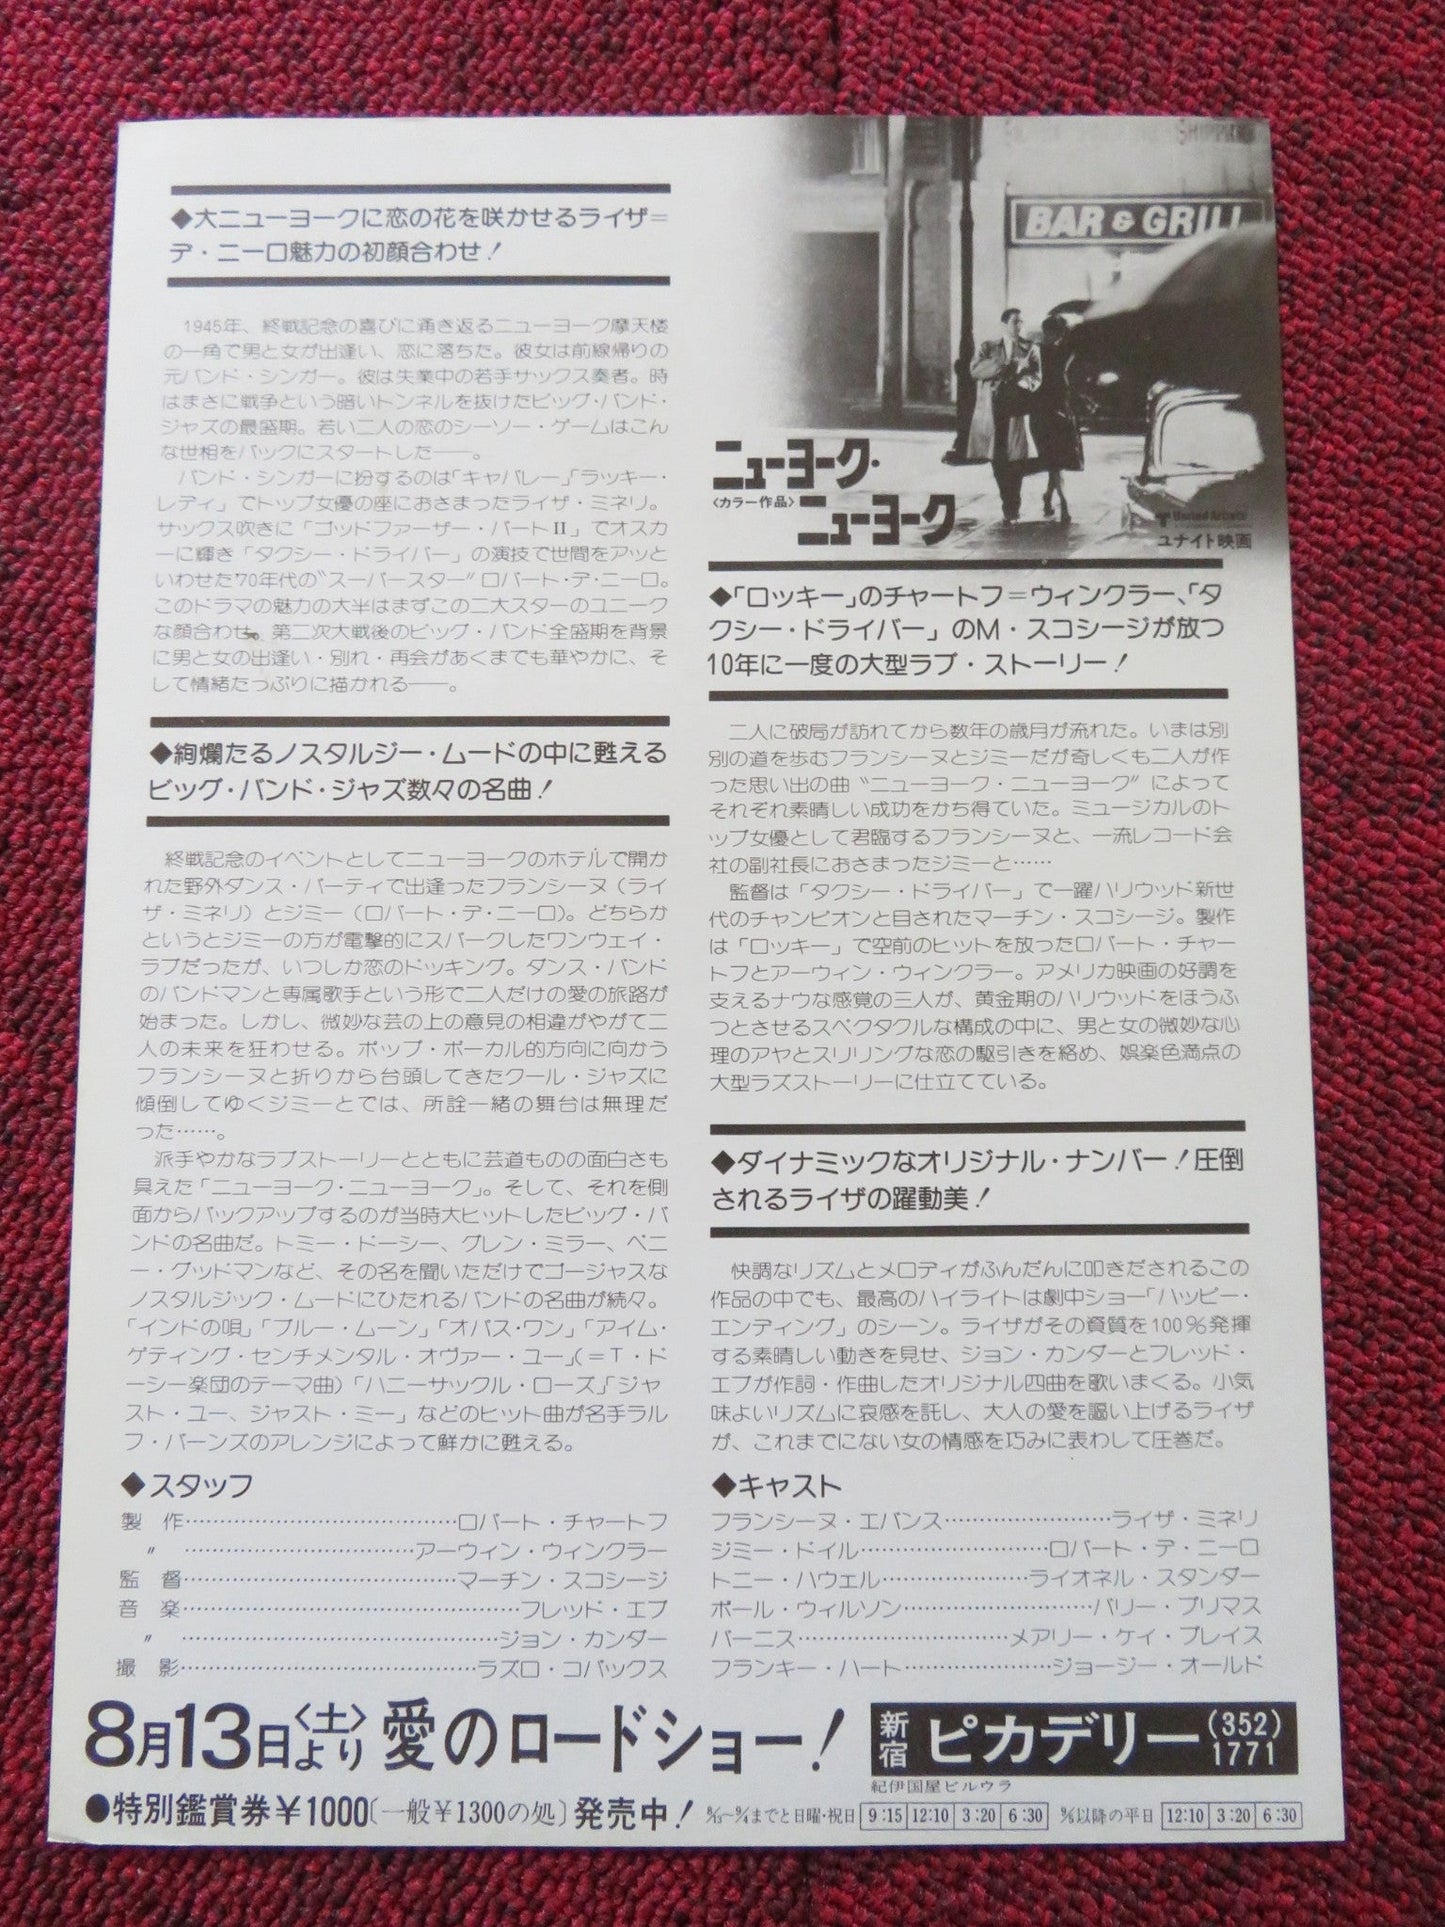 ◆大ニューヨークに恋の花を咲かせるライザ＝
デ・ニーロ魅力の初顔合わせ！
1945年、終戦記念の喜びに涌き返るニューヨーク摩天楼
の一角で男と女が出逢い、恋に落ちた。彼女は前線帰りの
元バンド・シンガー。彼は失業中の若手サックス奏者。時
はまさに戦争という暗いトンネルを抜けたビッグ・バンド・
ジャズの最盛期。若い二人の恋のシーソー・ゲームはこん
な世相をバックにスタートした──。
バンド・シンガーに扮するのは「キャバレー」「ラッキー・
レディ」でトップ女優の座におさまったライザ・ミネリ。
サックス吹きに「ゴッドファーザー・パートⅡ」でオスカ
ーに輝き「タクシー・ドライバー」の演技で世間をアッと
いわせた'70年代の〝スーパースター〟ロバート・デ・ニーロ。
このドラマの魅力の大半はまずこの二大スターのユニーク
な顔合わせ。第二次大戦後のビッグ・バンド全盛期を背景
に男と女の出逢い・別れ・再会があくまでも華やかに、そ
して情緒たっぷりに描かれる──。
◆絢爛たるノスタルジー・ムードの中に甦える
ビッグ・バンド・ジャズ数々の名曲！
終戦記念のイベントとしてニューヨークのホテルで開か
れた野外ダンス・パーティで出逢ったフランシーヌ（ライ
ザ・ミネリ）とジミー（ロバート・デ・ニーロ）。どちらか
というとジミーの方が電撃的にスパークしたワンウェイ・
ラブだったが、いつしか恋のドッキング。ダンス・バンド
のバンドマンと専属歌手という形で二人だけの愛の旅路が
始まった。しかし、微妙な芸の上の意見の相違がやがて二
人の未来を狂わせる。ポップ・ボーカル的方向に向かう
フランシーヌと折りから台頭してきたクール・ジャズに
傾倒してゆくジミーとでは、所詮一緒の舞台は無理だ
った……。
派手やかなラブストーリーとともに芸道ものの面白さも
具えた「ニューヨーク・ニューヨーク」。そして、それを側
面からバックアップするのが当時大ヒットしたビッグ・バ
ンドの名曲だ。トミー・ドーシー、グレン・ミラー、ベニ
ー・グッドマンなど、その名を聞いただけでゴージャスな
ノスタルジック・ムードにひたれるバンドの名曲が続々。
「インドの唄」「ブルー・ムーン」「オパス・ワン」「アイム・
ゲティング・センチメンタル・オヴァー・ユー」（＝T・ド
ーシー楽団のテーマ曲）「ハニーサックル・ローズ」「ジャ
スト・ユー、ジャスト・ミー」などのヒット曲が名手ラル
フ・バーンズのアレンジによって鮮かに甦える。
◆スタッフ
製　作……………………………ロバート・チャートフ
〃　……………………………アーウィン・ウィンクラー
監　督……………………………マーチン・スコシージ
音　楽……………………………フレッド・エブ
〃　……………………………ジョン・カンダー
撮　影……………………………ラズロ・コバックス
BAR & GRILL
ニューヨーク・
〈カラー作品〉
ニューヨーク
United Artists
ユナイト映画
◆「ロッキー」のチャートフ＝ウィンクラー、「タ
クシー・ドライバー」のM・スコシージが放つ
10年に一度の大型ラブ・ストーリー！
二人に破局が訪れてから数年の歳月が流れた。いまは別
別の道を歩むフランシーヌとジミーだが奇しくも二人が作
った思い出の曲〝ニューヨーク・ニューヨーク〟によって
それぞれ素晴しい成功をかち得ていた。ミュージカルのト
ップ女優として君臨するフランシーヌと、一流レコード会
社の副社長におさまったジミーと……
監督は「タクシー・ドライバー」で一躍ハリウッド新世
代のチャンピオンと目されたマーチン・スコシージ。製作
は「ロッキー」で空前のヒットを放ったロバート・チャー
トフとアーウィン・ウィンクラー。アメリカ映画の好調を
支えるナウな感覚の三人が、黄金期のハリウッドをほうふ
つとさせるスペクタクルな構成の中に、男と女の微妙な心
理のアヤとスリリングな恋の駆引きを絡め、娯楽色満点の
大型ラズストーリーに仕立てている。
◆ダイナミックなオリジナル・ナンバー！圧倒
されるライザの躍動美！
快調なリズムとメロディがふんだんに叩きだされるこの
作品の中でも、最高のハイライトは劇中ショー「ハッピー・
エンディング」のシーン。ライザがその資質を100％発揮
する素晴しい動きを見せ、ジョン・カンダーとフレッド・
エブが作詞・作曲したオリジナル四曲を歌いまくる。小気
味よいリズムに哀感を託し、大人の愛を謳い上げるライザ
が、これまでにない女の情感を巧みに表わして圧巻だ。
◆キャスト
フランシーヌ・エバンス……………………ライザ・ミネリ
ジミー・ドイル……………………ロバート・デ・ニーロ
トニー・ハウェル……………………ライオネル・スタンダー
ポール・ウィルソン……………………バリー・プリマス
バーニス……………………メアリー・ケイ・プレイス
フランキー・ハート……………………ジョージー・オールド
8月13日〈土〉より 愛のロードショー！
新宿 ピカデリー (352)1771
紀伊国屋ビルウラ
●特別鑑賞券￥1000〔一般￥1300の処〕発売中！
8/13〜9/4までと日曜・祝日 9:15 12:10 3:20 6:30
9/5以降の平日 12:10 3:20 6:30